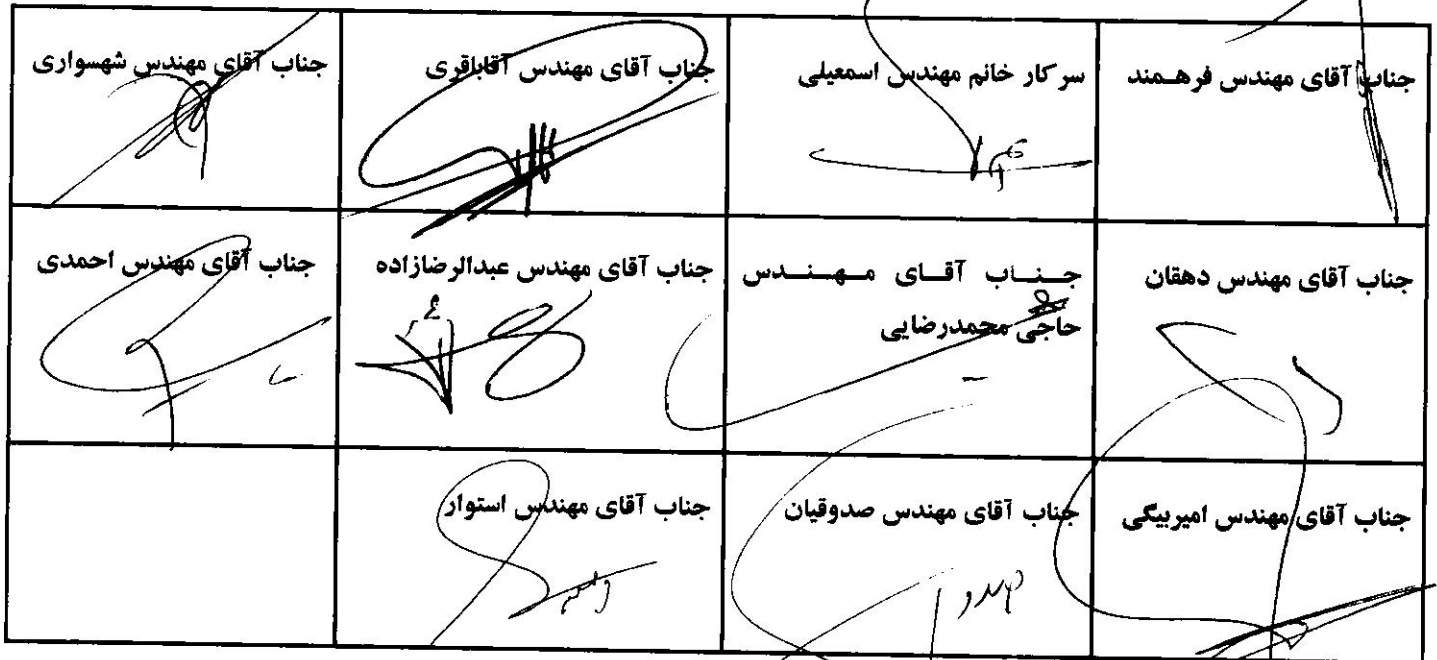 جناب آقای مهندس فرهمند
سرکار خانم مهندس اسمعیلی
جناب آقای مهندس آقاباقری
جناب آقای مهندس شهسواری
جناب آقای مهندس دهقان
جناب آقای مهندس
حاجی محمدرضایی
جناب آقای مهندس عبدالرضازاده
جناب آقای مهندس احمدی
جناب آقای مهندس امیربیگی
جناب آقای مهندس صدوقیان
جناب آقای مهندس استوار